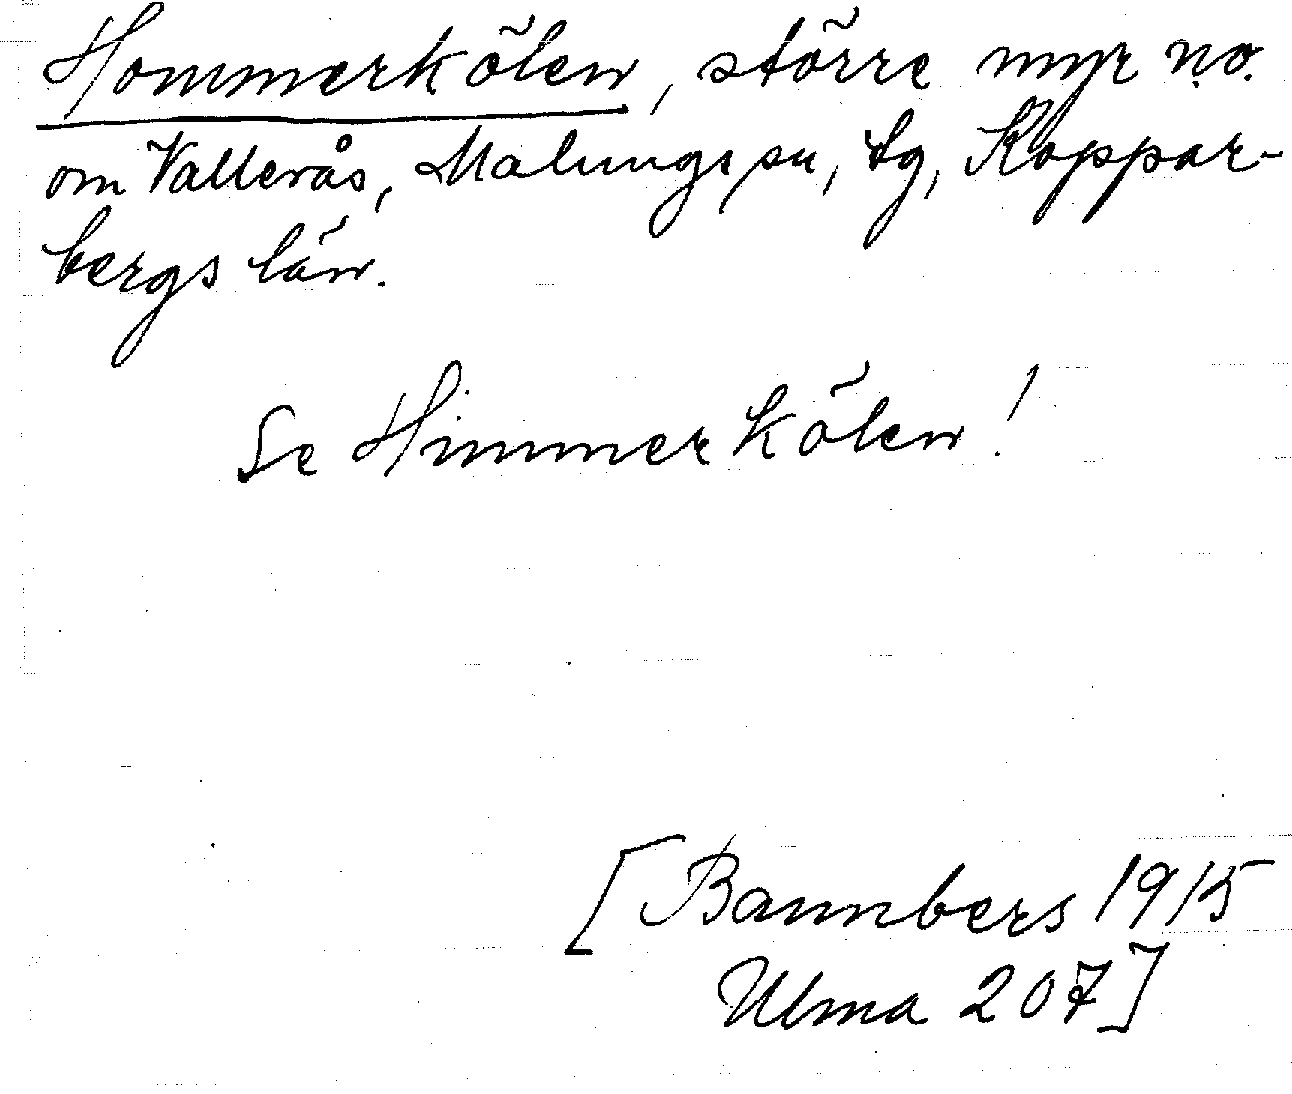 Hommerkölen, större myr n.o.
om Vallerås, Malungs sn, tg, Koppar-
bergs län.
Se Himmerkölen!
[Bannbers 1915
Ulma 207]